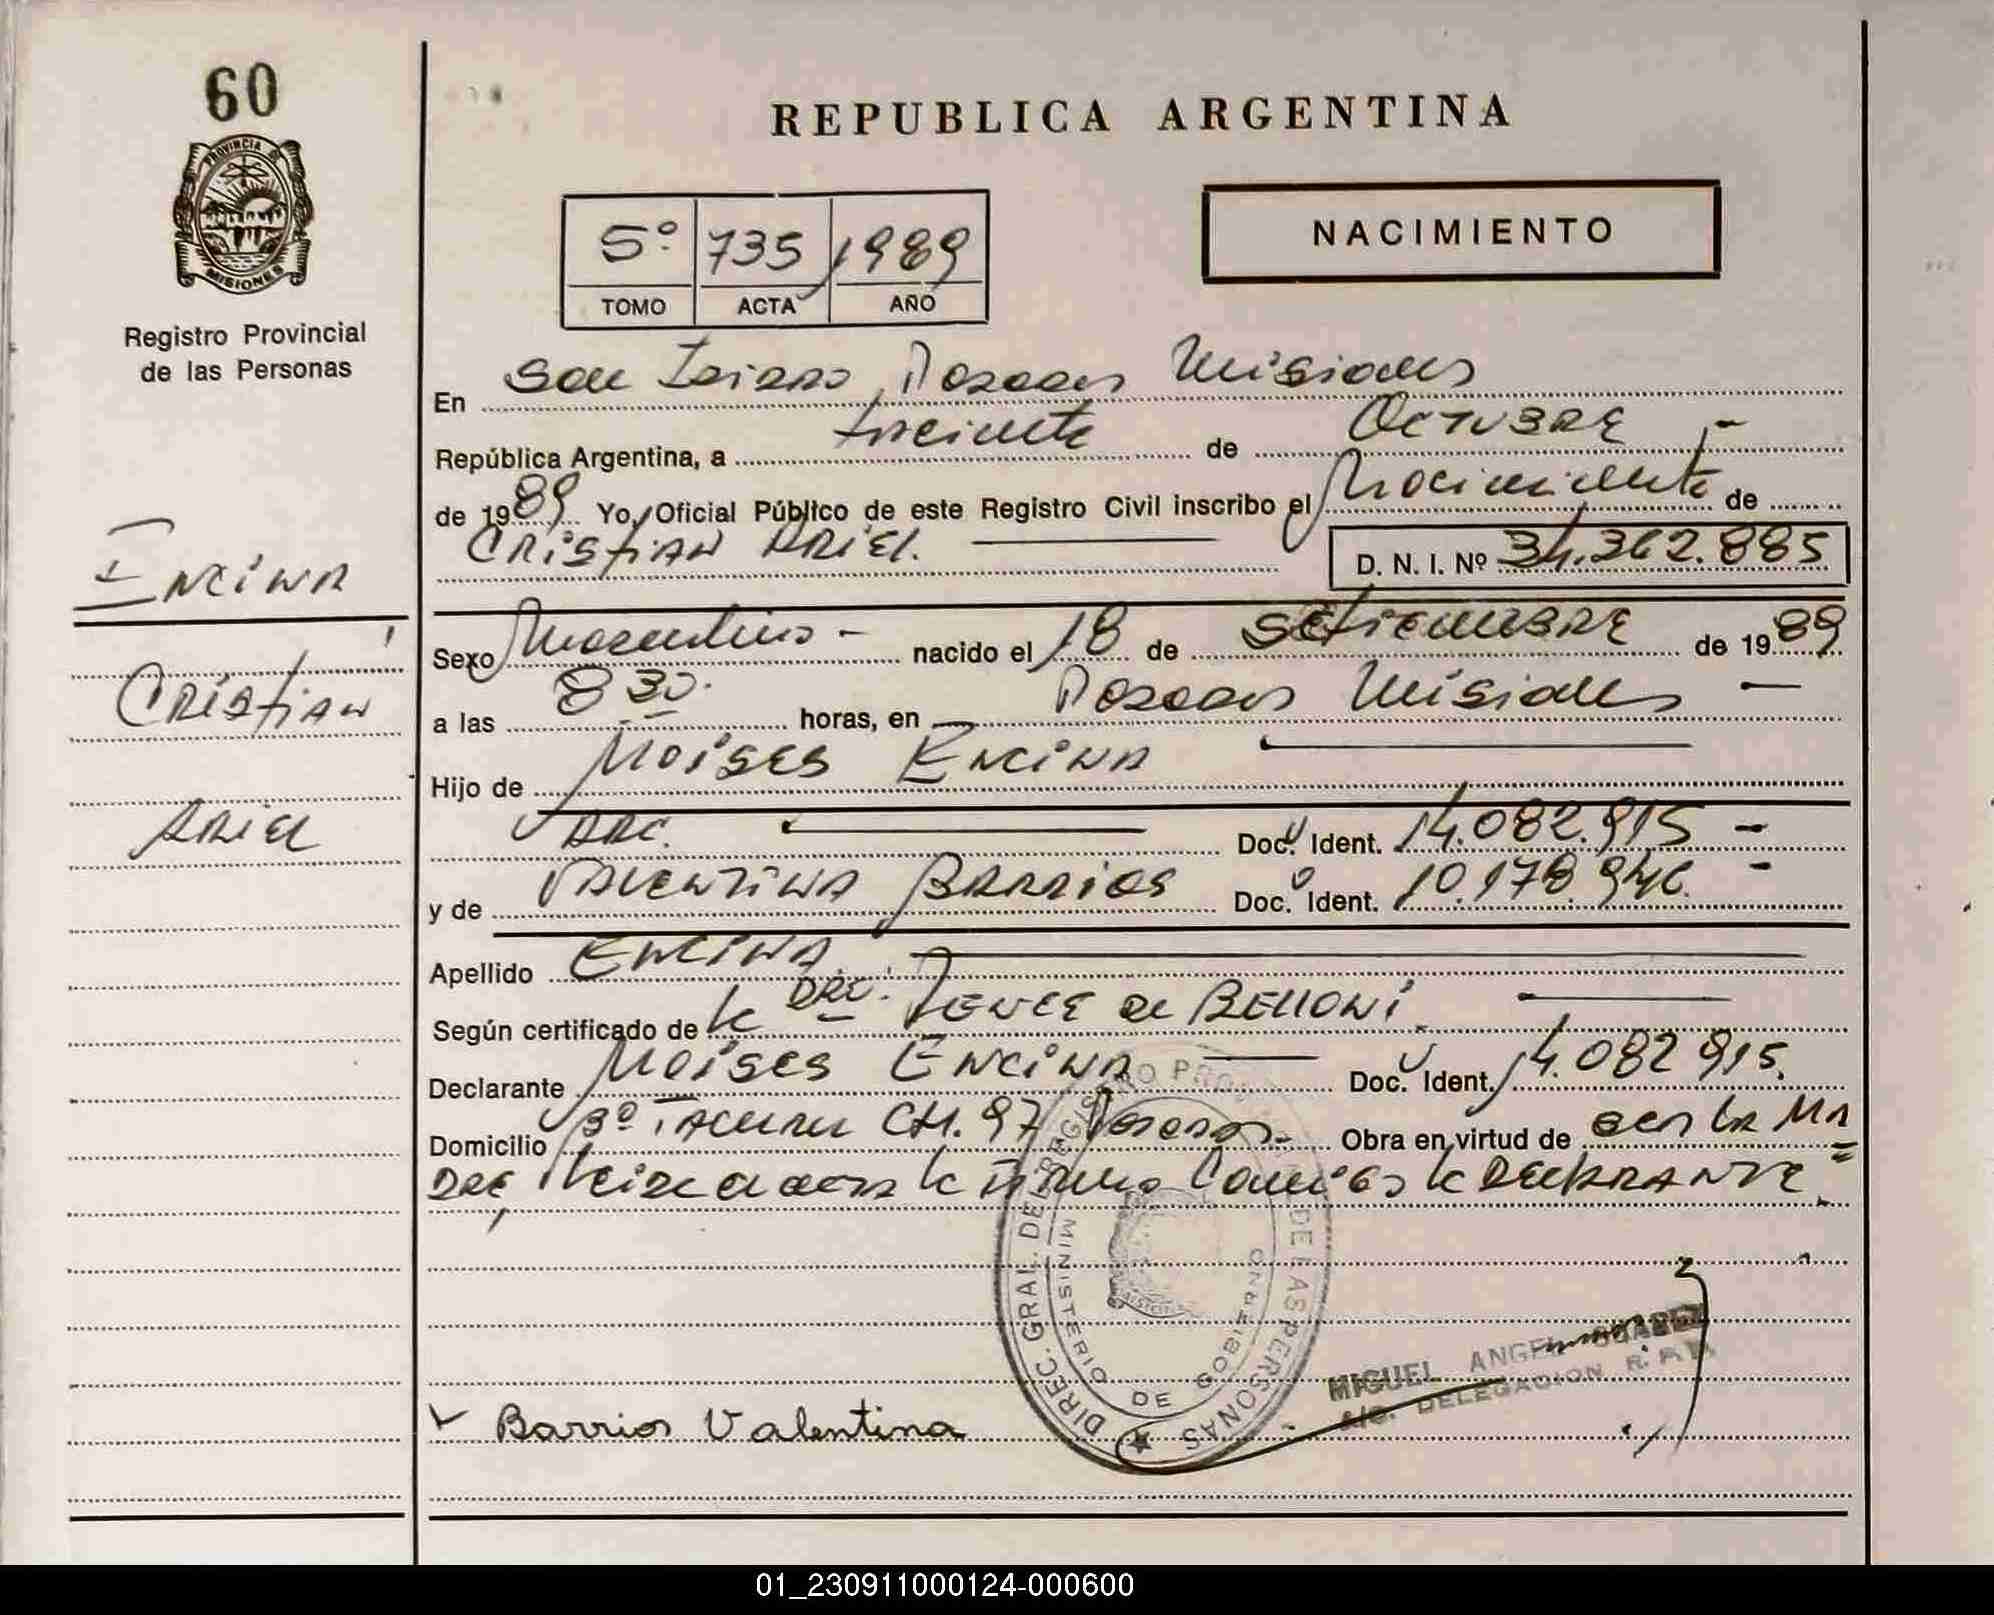 60
PROVINCIA DE
MISIONES
Registro Provincial
de las Personas
REPUBLICA ARGENTINA
NACIMIENTO
5º 735 1989
TOMO ACTA AÑO
En San Isidro, Posadas Misiones
República Argentina, a treinta de Octubre
de 1989 Yo, Oficial Público de este Registro Civil inscribo el Nacimiento de
CRISTIAN ARIEL. D. N. I. Nº 34.362.885
Encina
Cristian
Ariel
Sexo Masculino - nacido el 18 de SEtiEMBRE de 1989
a las 8 30. horas, en Posadas Misiones
Hijo de Moises Encina
ARG. Doc. Ident. 14.082.915 -
y de VALENTINA BARRIOS Doc. Ident. 10.178.946. -
Apellido ENCINA
Según certificado de la DRA. PONCE de BELLONI.
Declarante Moises Encina Doc. Ident. 14.082.915.
Domicilio Bº TACURU CH. 97 Posadas. Obra en virtud de ser la MA
DRE, firma con el DECLARANTE.
DIREC. GRAL. DEL REGISTRO PROVINCIAL DE LAS PERSONAS
MINISTERIO DE GOBIERNO
MIGUEL ANGEL SUAREZ
A/C. DELEGACION R. P. P.
Barrios Valentina
01_230911000124-000600